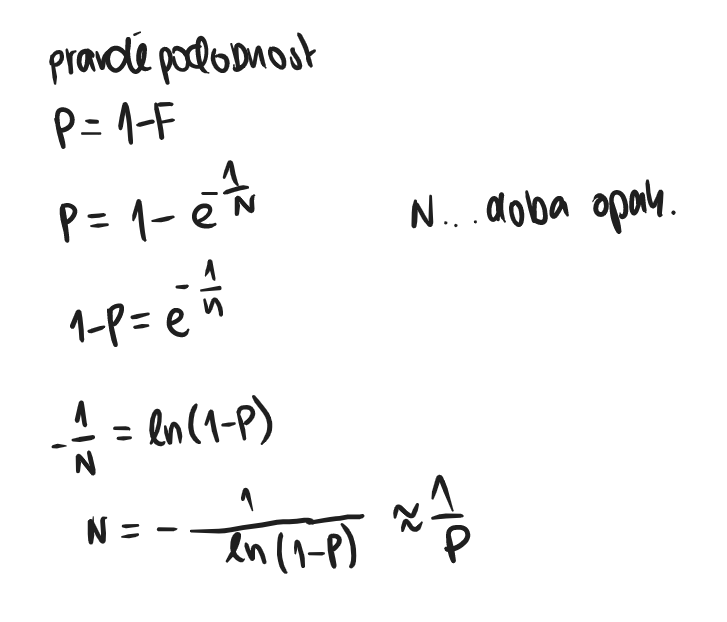 pravdě podobnost
P = 1-F
P = 1 - e^{-\frac{1}{N}}
N... doba opak.
1-P = e^{-\frac{1}{n}}
-\frac{1}{N} = ln(1-P)
N = - \frac{1}{ln(1-P)} ≈ \frac{1}{P}